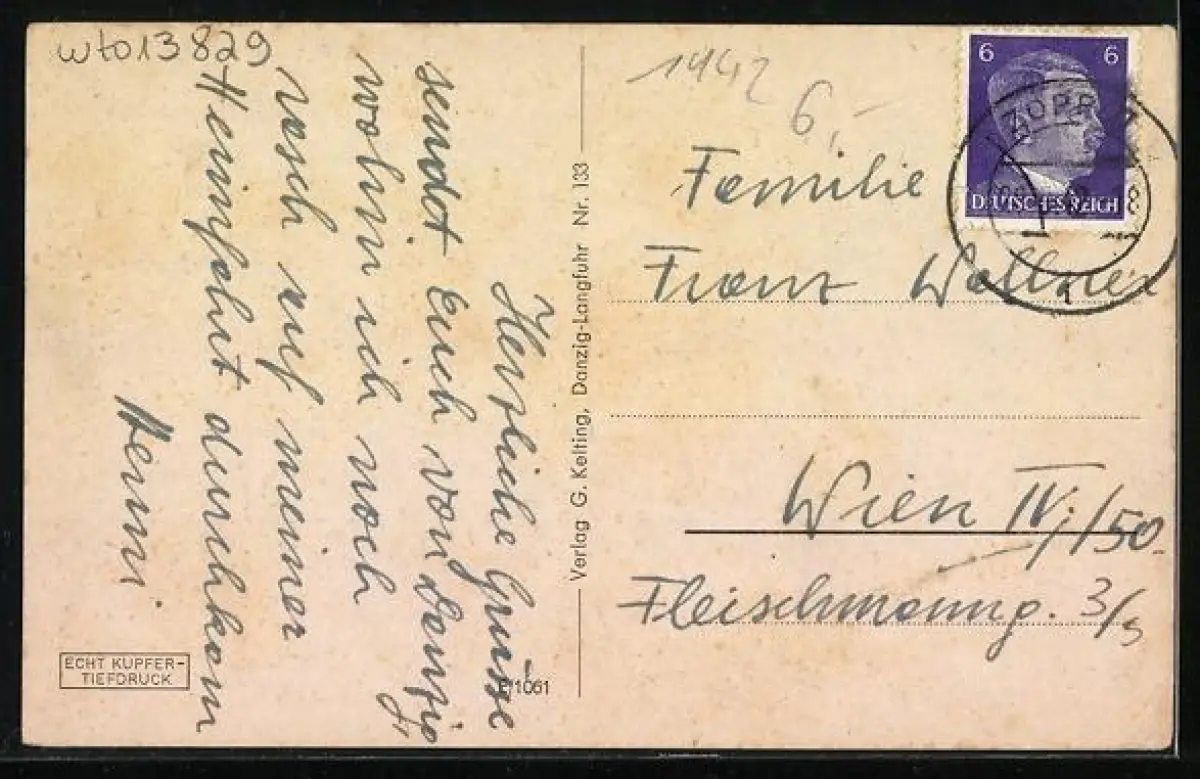 wto13829
Herzliche Grüsse
sendet Euch von Danzig
wohin ich noch
rasch auf meiner
Heimfahrt durchkam
Henni
ECHT KUPFER-
TIEFDRUCK
Verlag G. Kelting, Danzig-Langfuhr Nr. 133
1942
6,-
6 6
DEUTSCHES REICH
ZOPPOT
Familie
Franz Wallner
Wien IV./50.
Fleischmanng. 3/5